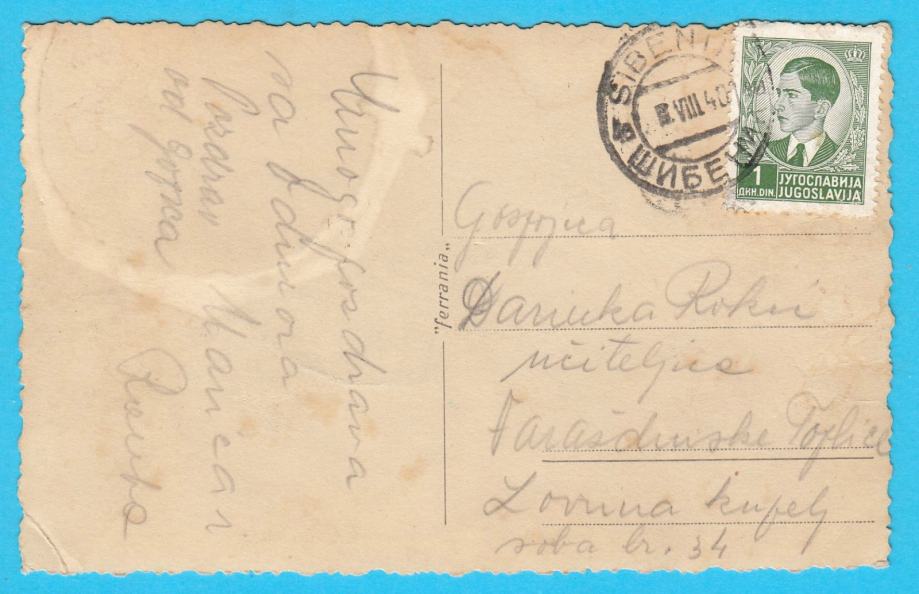 Mnogo pozdrava
sa Jadrana
Pozdrav Marica i
od Bojka Ranka
"ferrania"
ŠIBENIK
VIII.40
ШИБЕНИК
1
ДИН. DIN.
ЈУГОСЛАВИЈА
JUGOSLAVIJA
Gospojica
Darinka Rokić
učiteljica
Varaždinske Toplice
Lovrina kupelj
soba br. 34